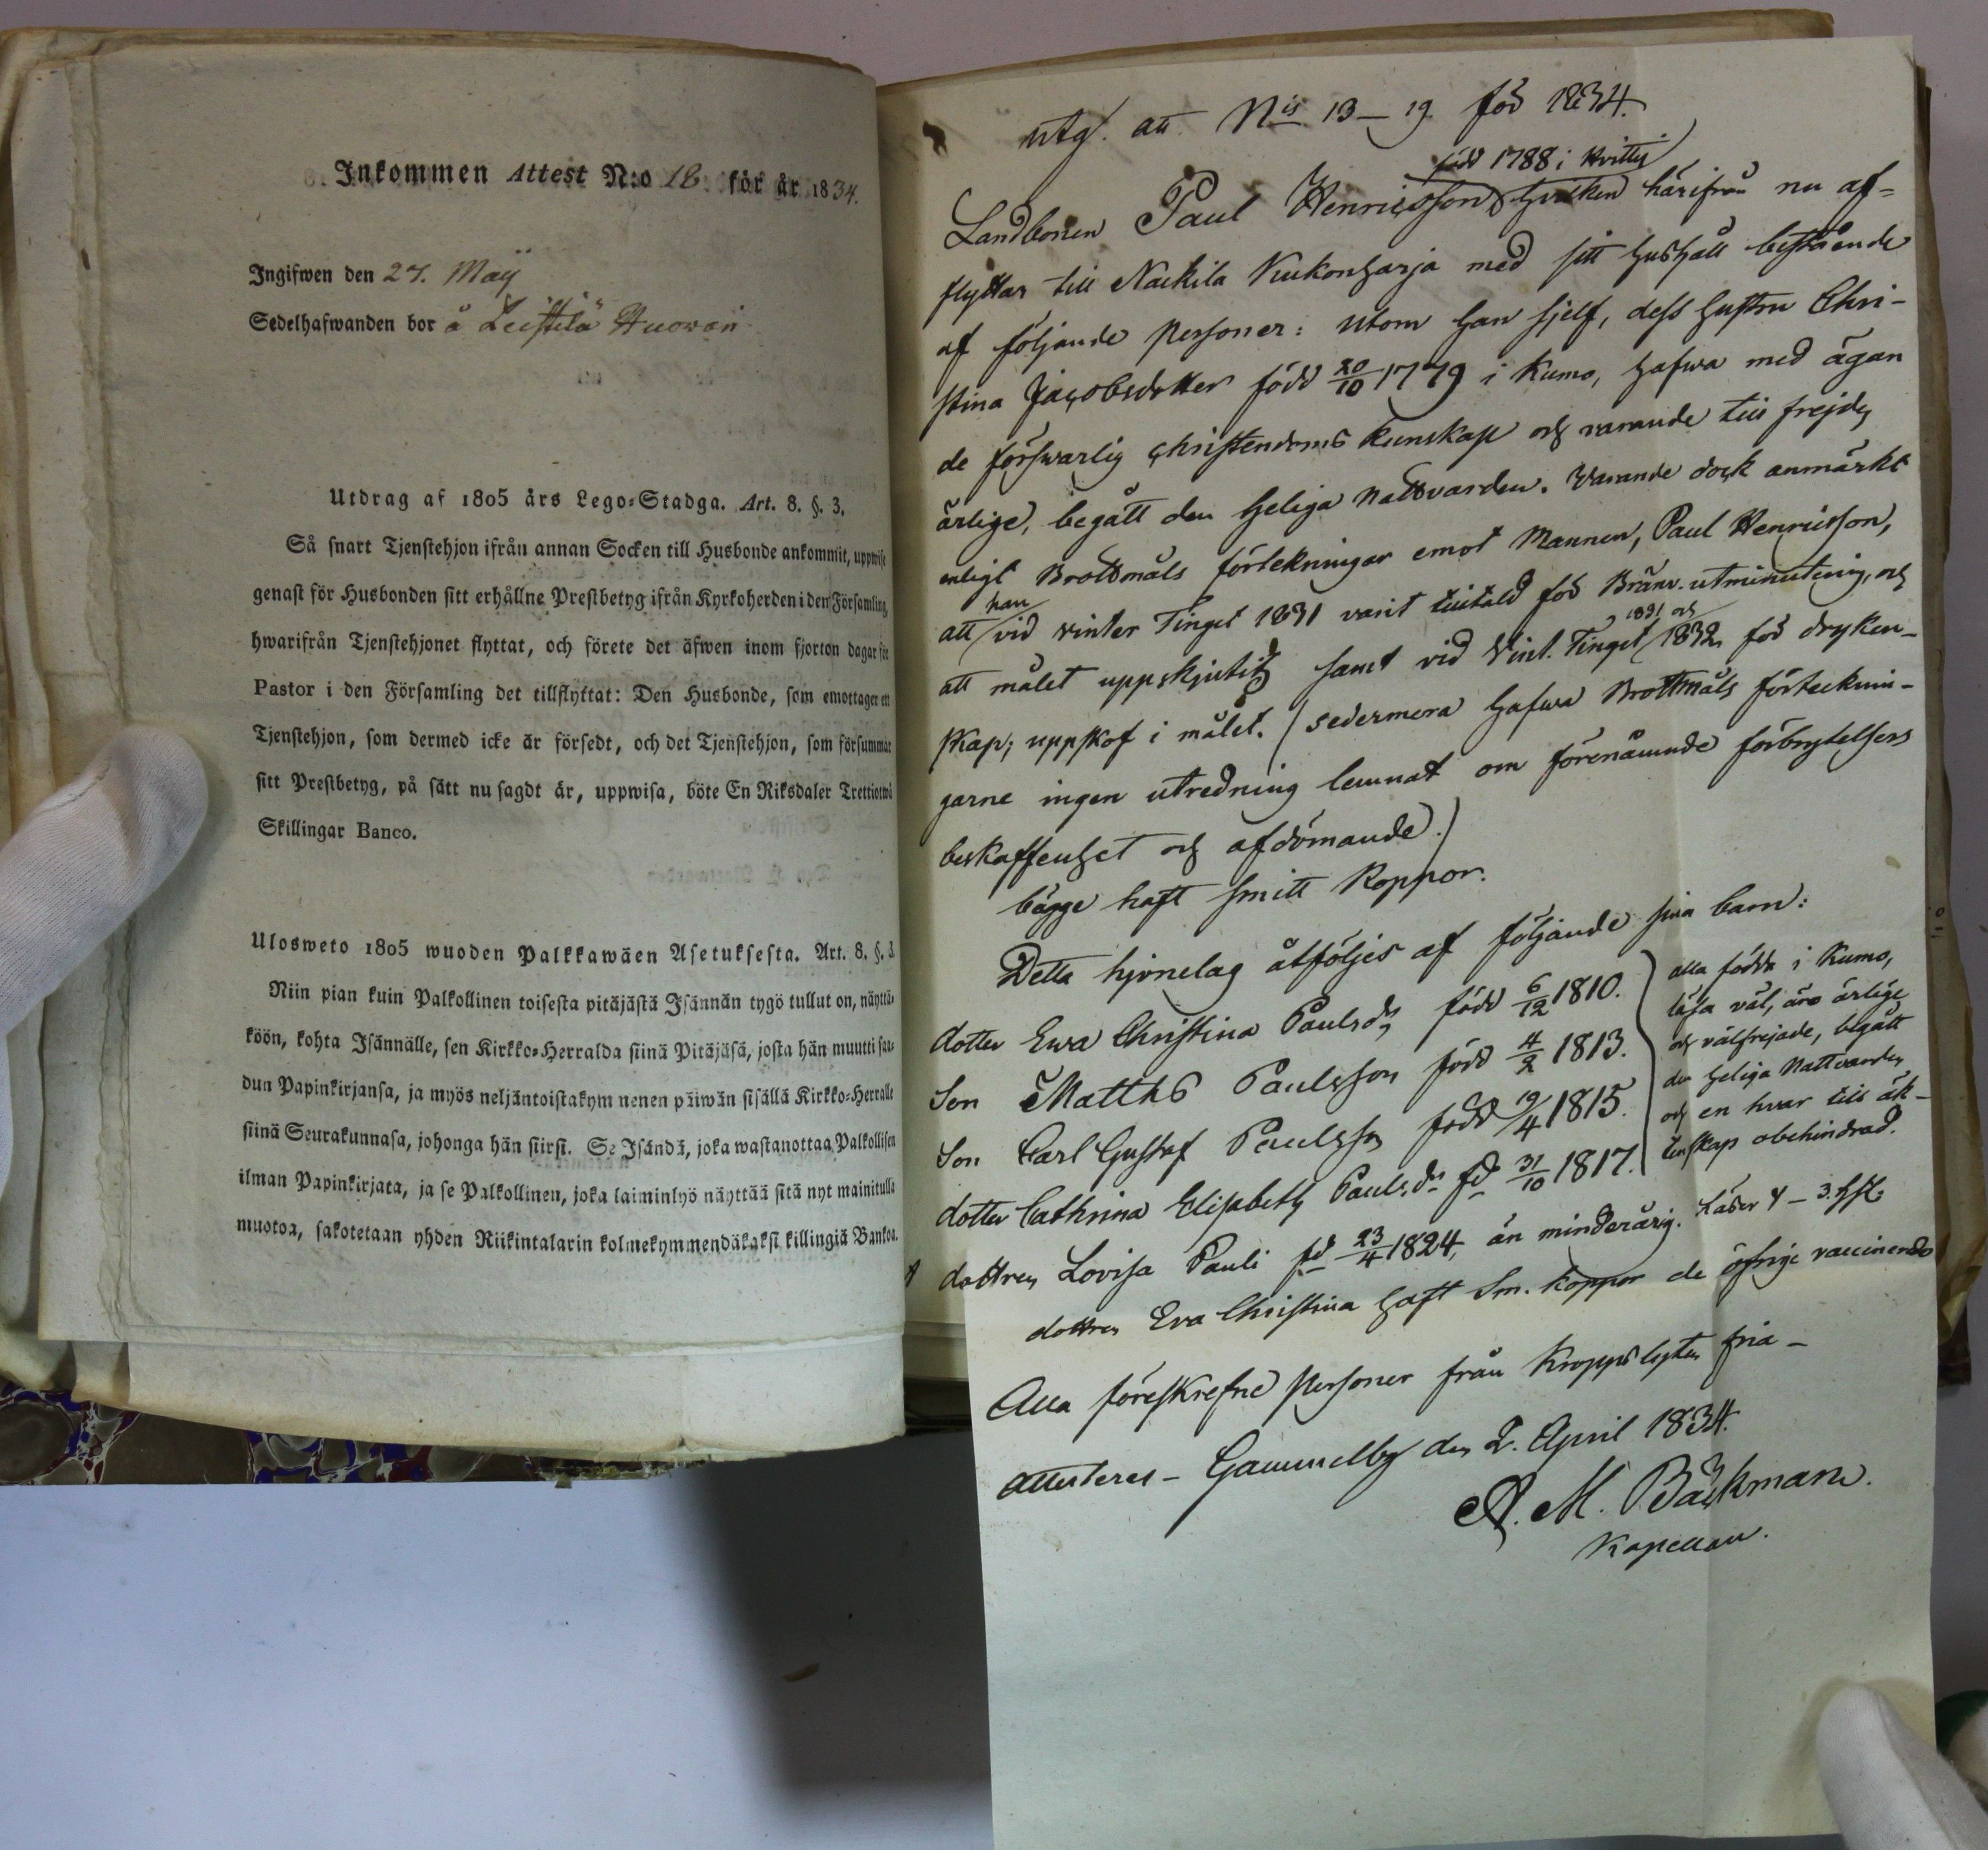 Inkommen Attest N:o 18. för år 1834.
Ingifwen den 27. Maÿ
Sedelhafwanden bor å Leistilä Huovari
Utdrag af 1805 års Lego-Stadga. Art. 8. §. 3.
Så snart Tjenstehjon ifrån annan Socken till Husbonde ankommit, uppwise
genast för Husbonden sitt erhållne Prestbetyg ifrån Kyrkoherden i den Församling,
hwarifrån Tjenstehjonet flyttat, och förete det äfwen inom fjorton dagar för
Pastor i den Församling det tillflyttat: Den Husbonde, som emottager ett
Tjenstehjon, som dermed icke är försedt, och det Tjenstehjon, som försummar
sitt Prestbetyg, på sätt nu sagdt är, uppwisa, böte En Riksdaler Trettiotwå
Skillingar Banco.
Ulosweto 1805 wuoden Palkkawäen Asetuksesta. Art. 8. §. 3.
Niin pian kuin Palkollinen toisesta pitäjästä Isännän tygö tullut on, näyttä-
köön, kohta Isännälle, sen Kirkko-Herralda siinä Pitäjäsä, josta hän muutti saa-
dun Papinkirjansa, ja myös neljäntoistakym nenen päiwän sisällä Kirkko-Herralle
siinä Seurakunnasa, johonga hän siirsi. Se Isändä, joka wastanottaa Palkollisen
ilman Papinkirjata, ja se Palkollinen, joka laiminlyö näyttää sitä nyt mainitulla
muotoa, sakotetaan yhden Riikintalarin kolmekymmendäkaksi killingiä Bankoa.
utg. att. N:is 13-19. för 1834.
född 1788 i Kvittis
Landbonen Paul Henricsson hvilken härifrån nu af-
flyttar till Nackila Kukonharja med sitt hushåll bestående
af följande personer: utom han sjelf, dess hustru Chri-
stina Jacobsdotter född 20/10 1779 i Kumo, hafwa med ägan
de försvarlig christendoms kunskap och varande till frejden
ärlige, begått den heliga nattvarden. Varande dock anmärkt
enligt Brottmåls förtekningar emot Mannen, Paul Henricsson,
att han vid vinter Tinget 1831 varit tilltald för Bränv. utminutering, och
att målet uppskjutits samt vid Vint. Tinget 1831 och 1832 för dryken-
skap; uppskof i målet. (sedermera hafwa Brottmåls förtecknin-
garne ingen utredning lemnat om förenämnde förbrytelsers
beskaffenhet och afdömande.)
bägge haft smitt koppor.
Detta hjonelag åtföljes af följande sina barn:
dotter Ewa Christina Paulsdr född 6/12 1810.
Son Matths Paulsson född 4/2 1813.
Son Carl Gustaf Paulsson född 19/4 1815.
dotter Cathrina Elisabeth Paulsdr fd 31/10 1817.
alla födda i Kumo,
läsa väl, äro ärlige
och välfrejdade, begått
den heliga Nattvarden
och en hvar till äk-
tenskap obehindrad.
dottren Lovisa Pauli fd 23/4 1824, än minderårig. Läser 4-3. hfst.
dottren Eva Christina haft Sm. koppor de öfrige vaccinerade
Alla föreskrefne personer från Kroppslyten fria-
attesteres - Gammelby den 2. April 1834.
A. M. Bäckman.
Kapellan.